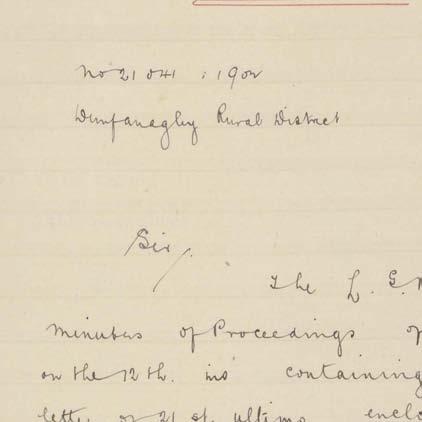 No 21041 : 1902
Dunfanaghy Rural District
Sir,
The L. G.
Minutes of Proceedings of
on the 12th. ins containing
letter of 21st. ultimo enclo